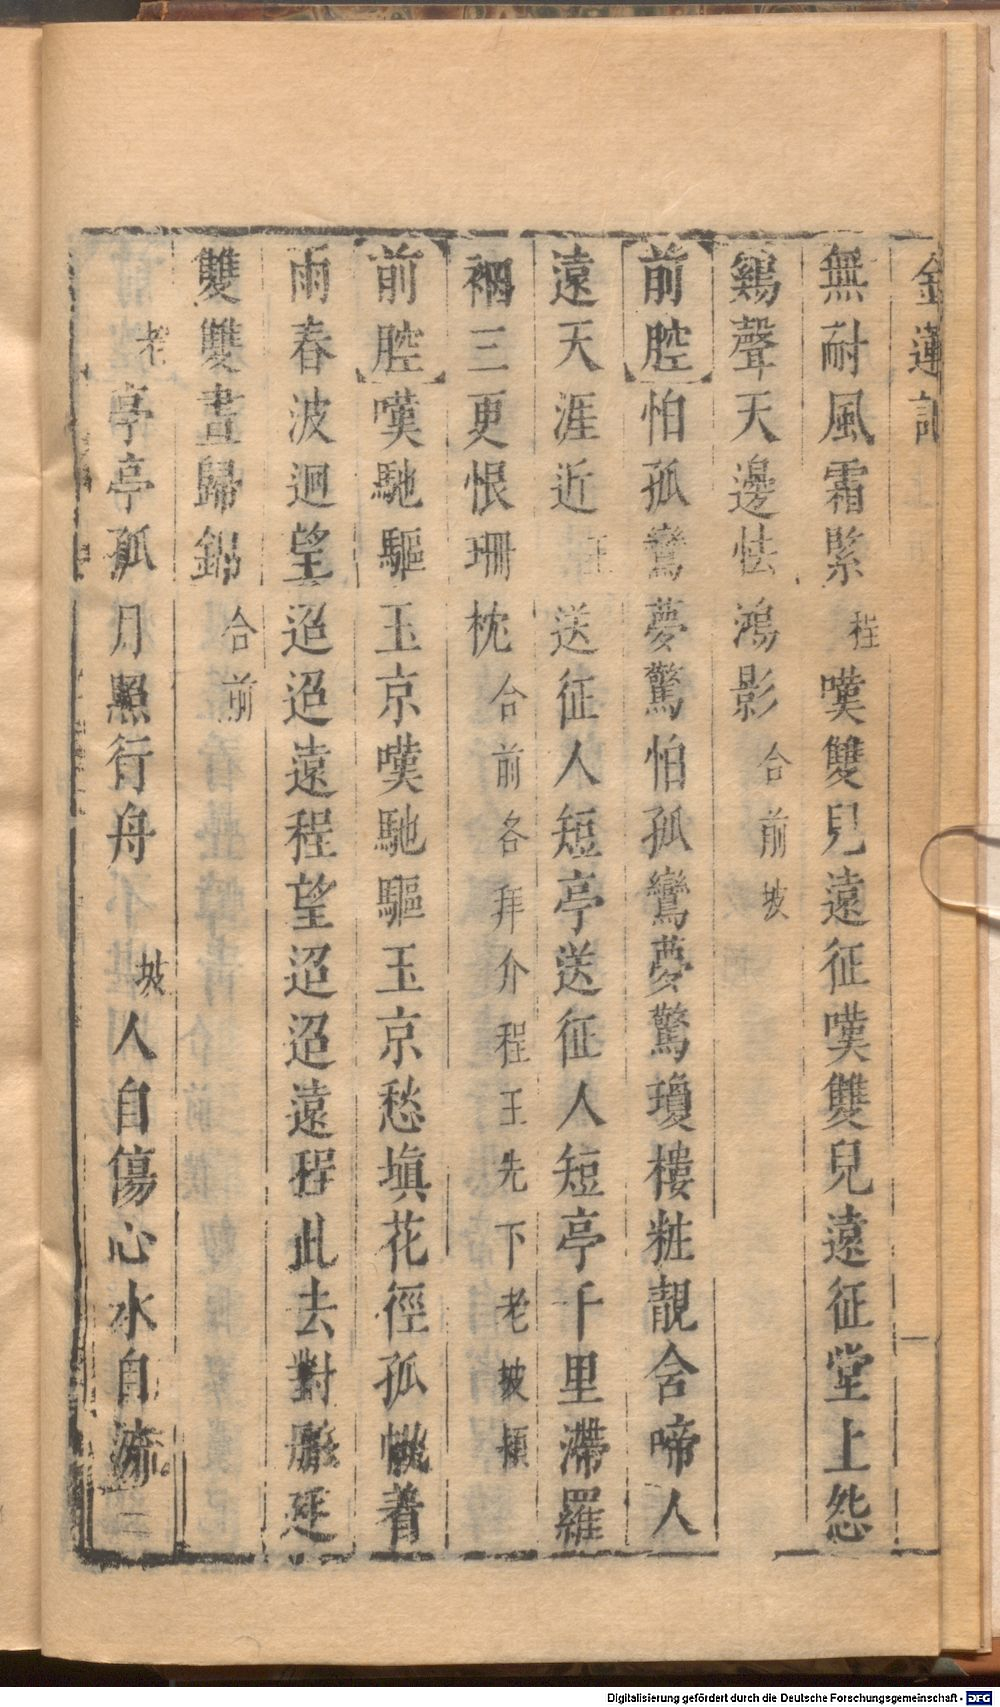 金蓮記
無耐風霜緊程嘆雙兒遠征嘆雙兒遠征堂上怨
鷄聲天邊怯鴻影合前坡
前腔怕孤鸞夢驚怕孤鸞夢驚瓊樓粧靚舍啼人
遠天涯近王送征人短亭送征人短亭千里滯羅
裀三更恨珊枕合前各拜介程王先下老坡穎
前腔嘆馳驅玉京嘆馳驅玉京愁塡花徑孤帆着
雨春波迴望迢迢遠程望迢迢遠程此去對 延
雙雙晝歸錦合前
老亭亭孤月照行舟坡人自傷心水自流
Digitalisierung gefördert durch die Deutsche Forschungsgemeinschaft - DFG